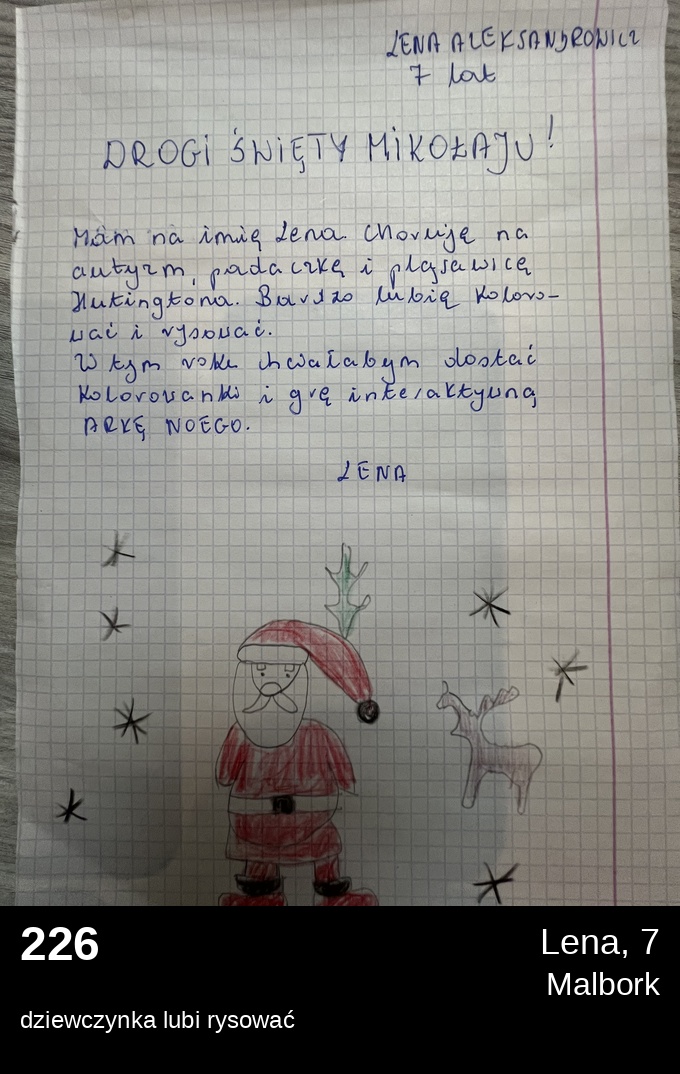 LENA ALEKSANDROWICZ
7 lat
DROGI ŚWIĘTY MIKOŁAJU!
Mam na imię Lena. Choruję na
autyzm, padaczkę i pląsawicę
Hutingtona. Bardzo lubię koloro-
wać i rysować.
W tym roku chwałabym dostać
kolorowanki i grę interaktywną
ARKĘ NOEGO.
LENA
226
Lena, 7
Malbork
dziewczynka lubi rysować